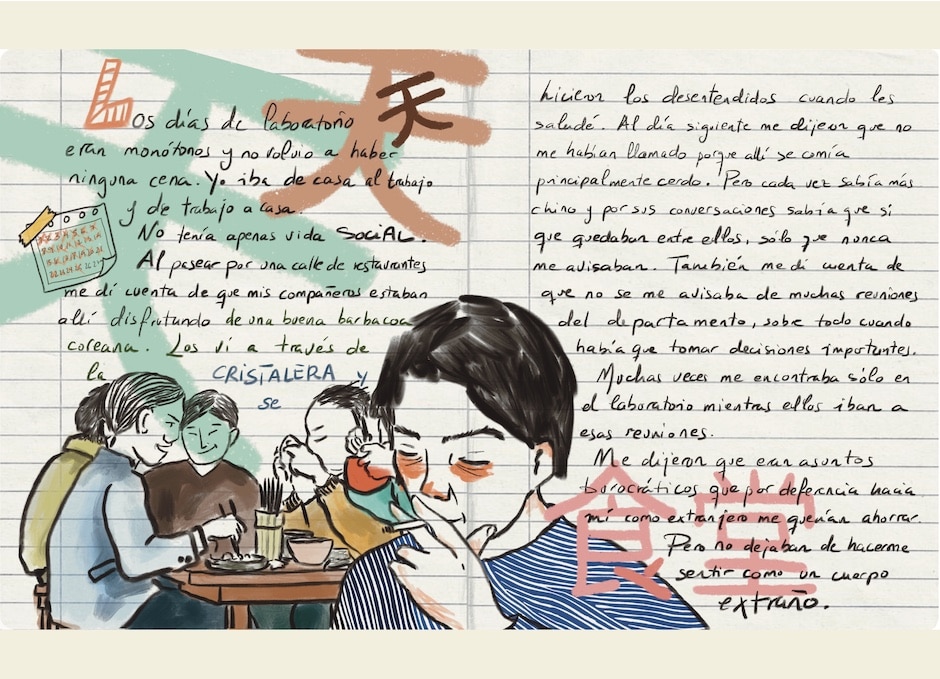 Los días de laboratorio
天
eran monótonos y no volvió a haber
ninguna cena. Yo iba de casa al trabajo
y de trabajo a casa.
No tenía apenas vida SOCIAL.
Al pasear por una calle de restaurantes
me dí cuenta de que mis compañeros estaban
allí disfrutando de una buena barbacoa
coreana. Los ví a través de
la CRISTALERA y
se
hicieron los desentendidos cuando les
saludé. Al día siguiente me dijeron que no
me habían llamado porque allí se comía
principalmente cerdo. Pero cada vez sabía más
chino y por sus conversaciones sabía que sí
que quedaban entre ellos, sólo que nunca
me avisaban. También me dí cuenta de
que no se me avisaba de muchas reuniones
del departamento, sobre todo cuando
había que tomar decisiones importantes.
Muchas veces me encontraba sólo en
el laboratorio mientras ellos iban a
esas reuniones.
Me dijeron que eran asuntos
burocráticos que por deferencia hacia
mí como extranjero me querían ahorrar.
Pero no dejaban de hacerme
sentir como un cuerpo
extraño.
食堂